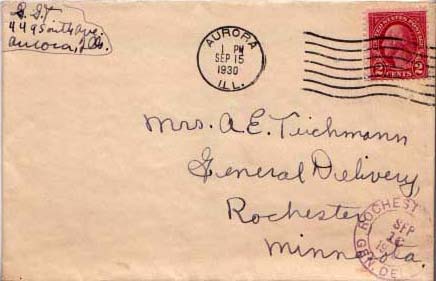 449 South Ave.
Aurora, Ills.
AURORA
1 PM
SEP 15
1930
ILL.
UNITED STATES POSTAGE
2 CENTS 2
Mrs. A E. Teichmann
General Delivery,
Rochester
Minnesota.
ROCHEST
SEP
16
GEN. DEL